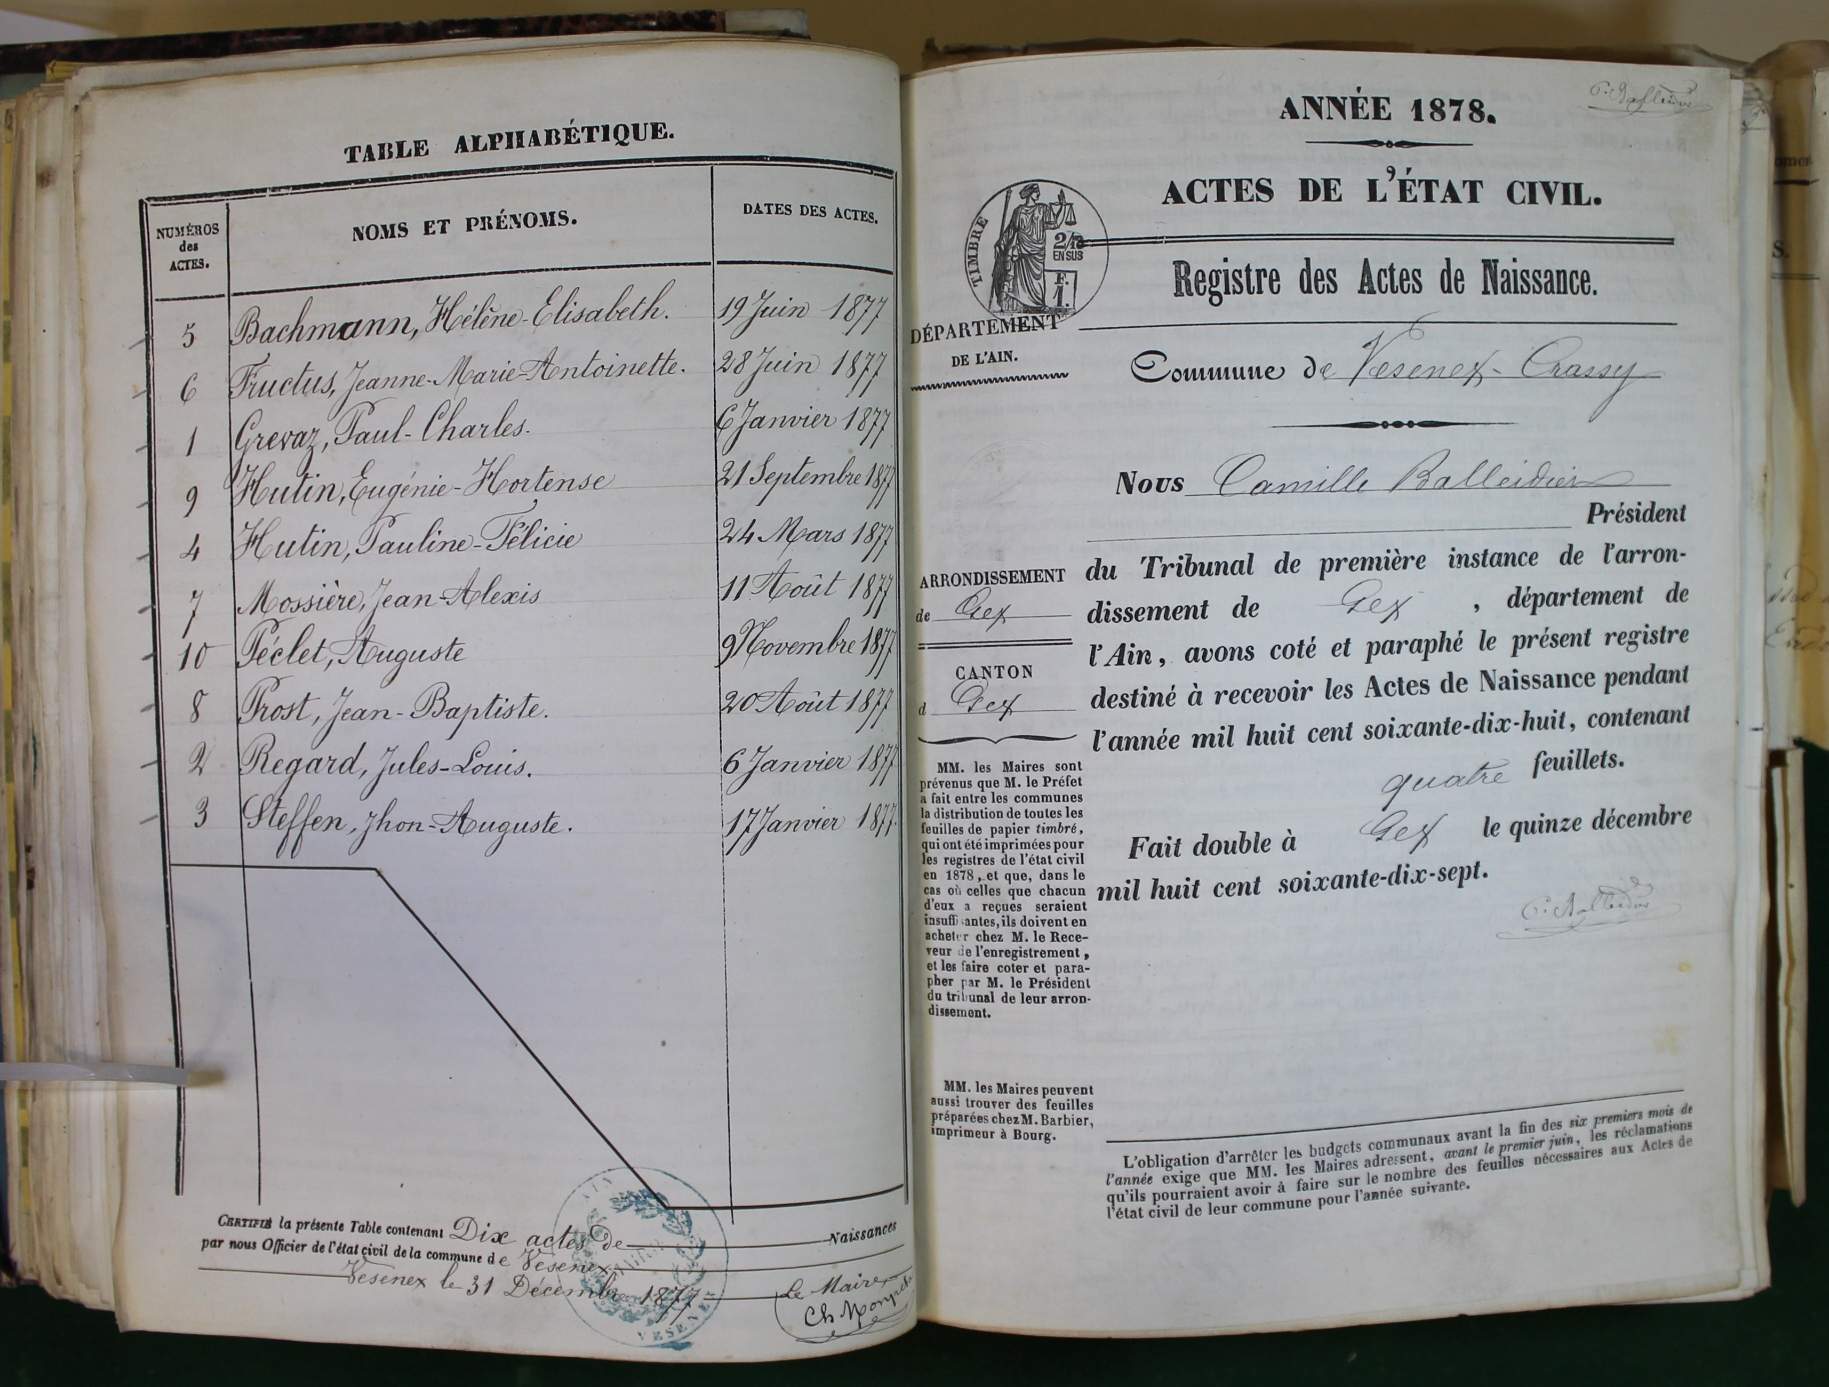 TABLE ALPHABÉTIQUE.
NUMÉROS
des
ACTES.
NOMS ET PRÉNOMS.
DATES DES ACTES.
5 Bachmann, Hélène-Elisabeth. 19 Juin 1877
6 Fructus, Jeanne-Marie-Antoinette. 28 Juin 1877
1 Grevaz, Paul-Charles. 6 Janvier 1877
9 Hutin, Eugénie-Hortense 21 Septembre 1877
4 Hutin, Pauline-Félicie 24 Mars 1877
7 Mossière, Jean-Alexis 11 Août 1877
10 Péclet, Auguste 9 Novembre 1877
8 Prost, Jean-Baptiste. 20 Août 1877
2 Regard, Jules-Louis. 6 Janvier 1877
3 Steffen, Jhon-Auguste. 17 Janvier 1877
CERTIFIÉ la présente Table contenant Dix actes de Naissances
par nous Officier de l'état civil de la commune de Vesenex
Vesenex le 31 Décembre 1877
Le Maire
VESENEX
ANNÉE 1878.
ACTES DE L'ÉTAT CIVIL.
TIMBRE
2/10
EN SUS
F.
1.
Registre des Actes de Naissance.
DÉPARTEMENT
DE L'AIN.
Commune de Vesenex-Crassy
Nous Camille Balleidier
Président
du Tribunal de première instance de l'arron-
dissement de Gex, département de
l'Ain, avons coté et paraphé le présent registre
destiné à recevoir les Actes de Naissance pendant
l'année mil huit cent soixante-dix-huit, contenant
quatre feuillets.
Fait double à Gex le quinze décembre
mil huit cent soixante-dix-sept.
C. Balleidier
ARRONDISSEMENT
de Gex
CANTON
d Gex
MM. les Maires sont
prévenus que M. le Préfet
a fait entre les communes
la distribution de toutes les
feuilles de papier timbré,
qui ont été imprimées pour
les registres de l'état civil
en 1878, et que, dans le
cas où celles que chacun
d'eux a reçues seraient
insuffisantes, ils doivent en
acheter chez M. le Rece-
veur de l'enregistrement,
et les faire coter et para-
pher par M. le Président
du tribunal de leur arron-
dissement.
MM. les Maires peuvent
aussi trouver des feuilles
préparées chez M. Barbier,
imprimeur à Bourg.
L'obligation d'arrêter les budgets communaux avant la fin des six premiers mois de
l'année exige que MM. les Maires adressent, avant le premier juin, les réclamations
qu'ils pourraient avoir à faire sur le nombre des feuilles nécessaires aux Actes de
l'état civil de leur commune pour l'année suivante.